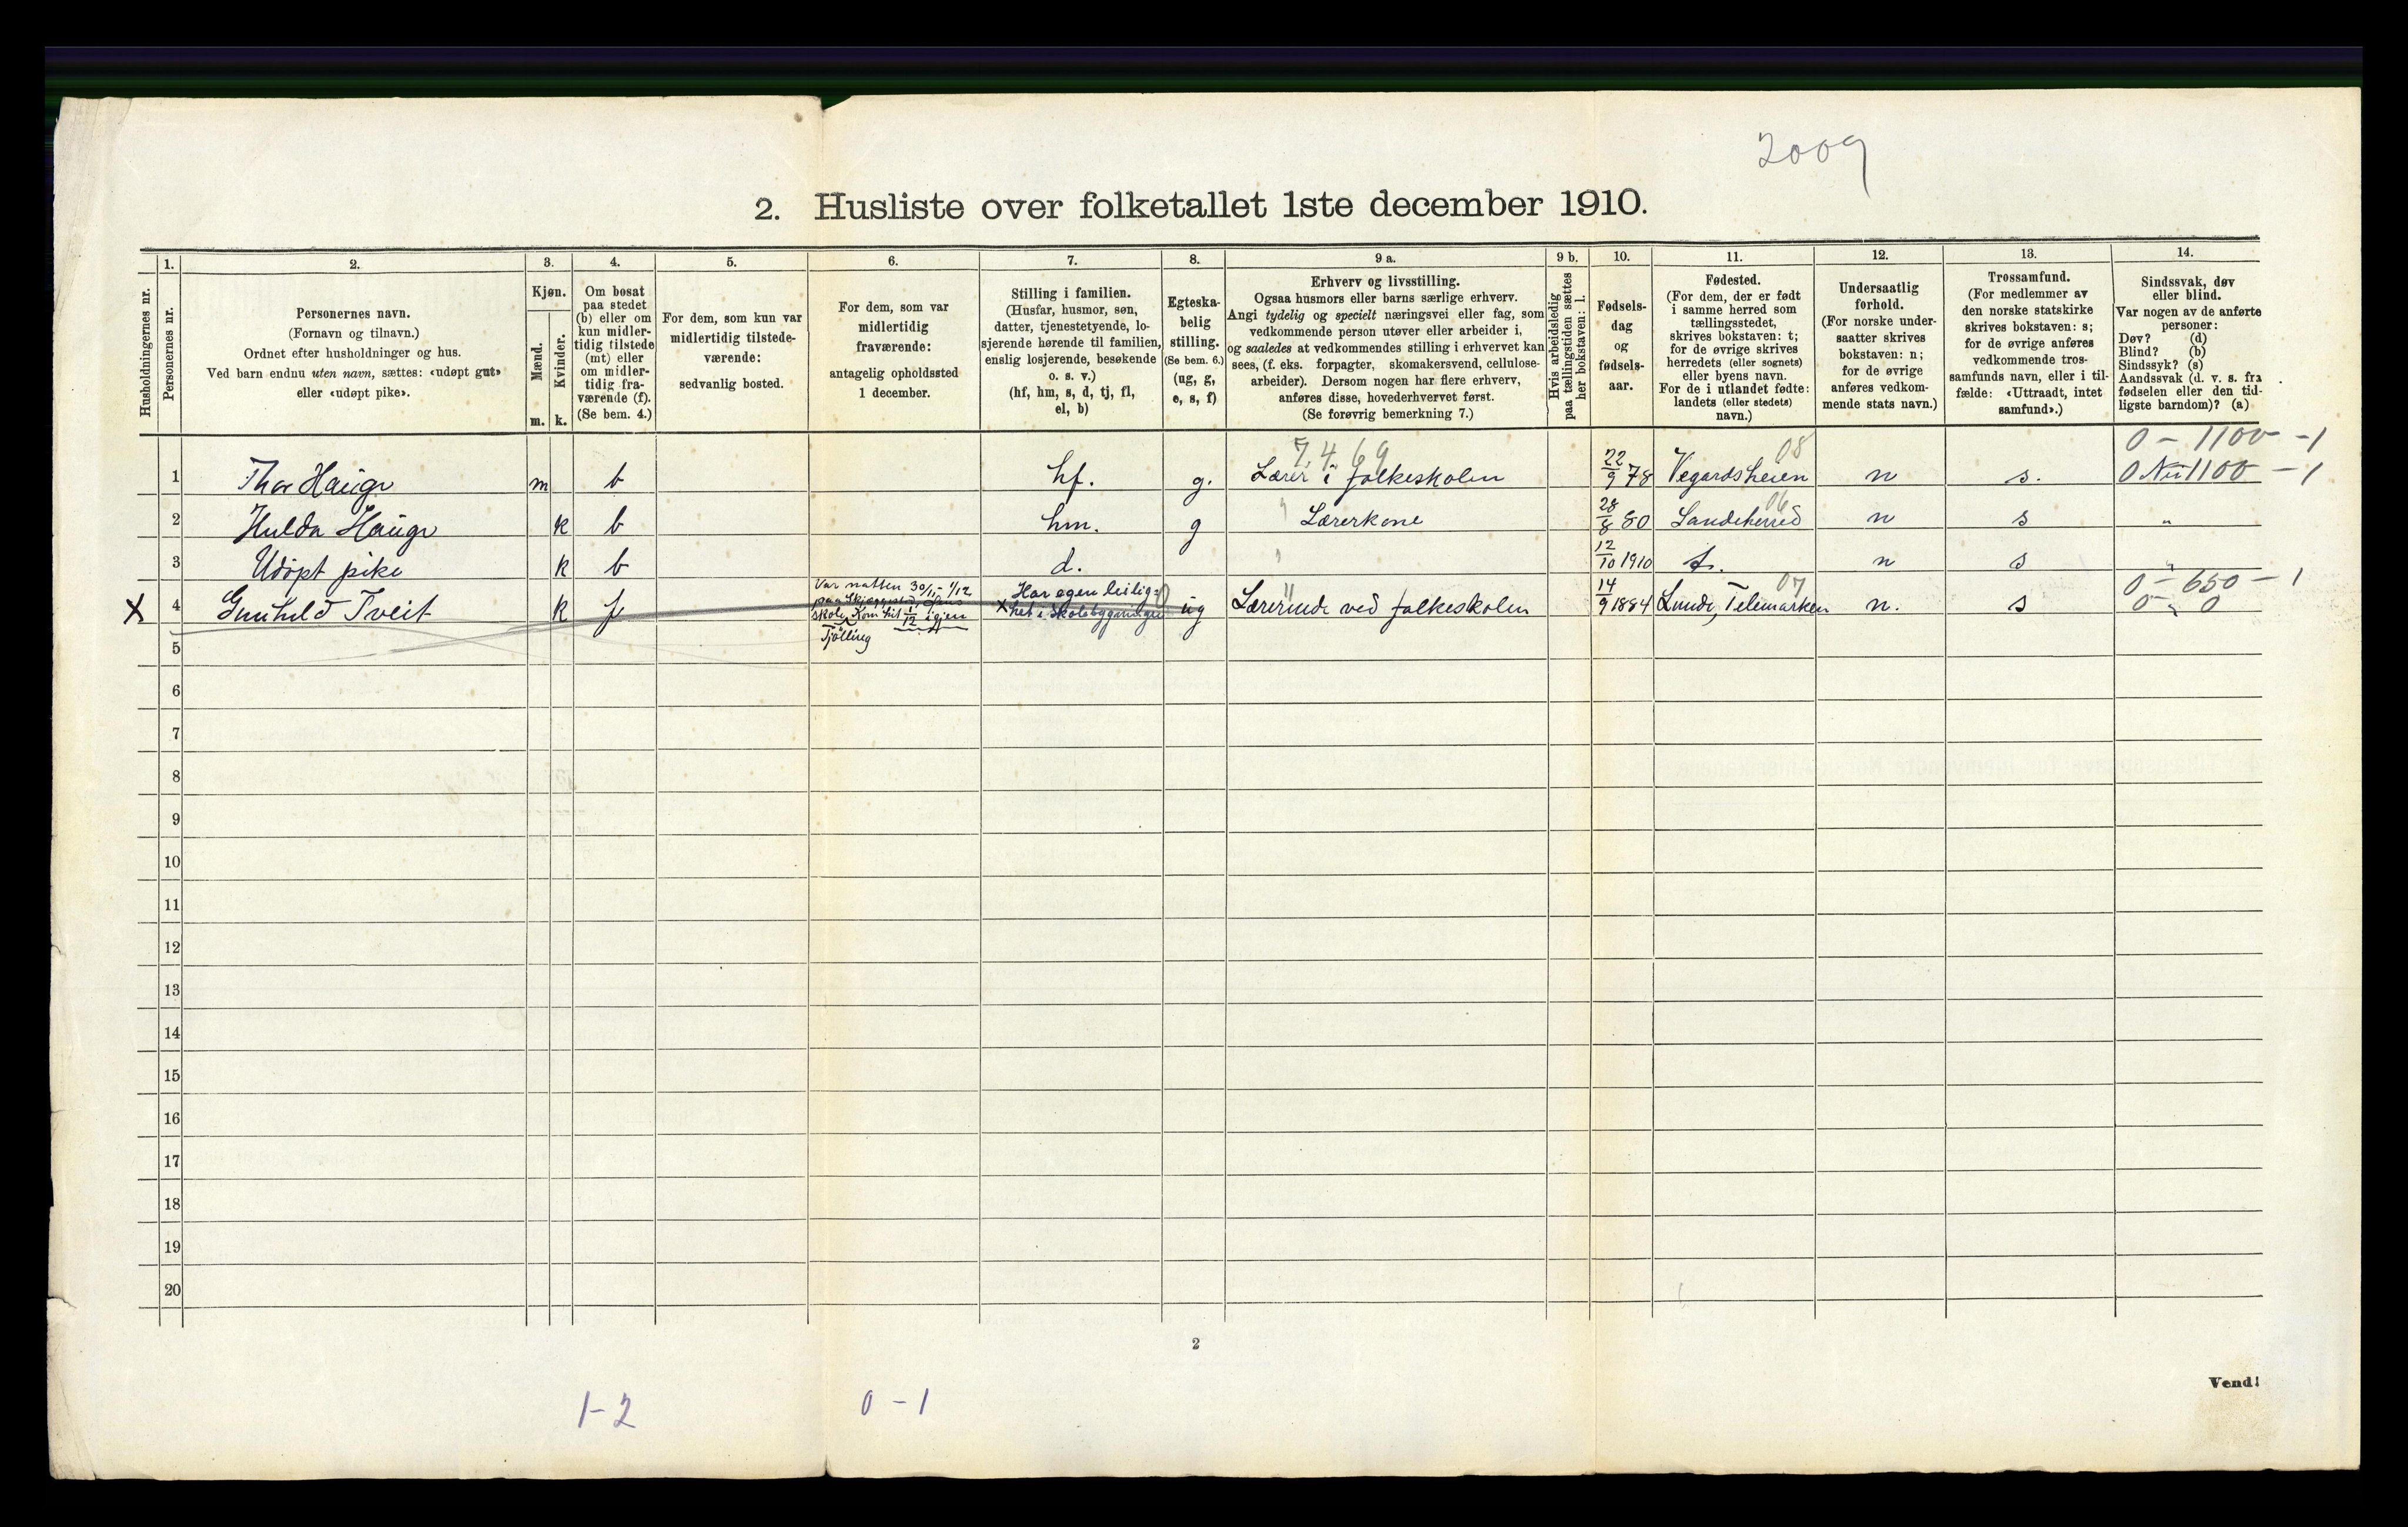 2009
2. Husliste over folketallet 1ste december 1910.
Husholdningernes nr.
1.
Personernes nr.
2.
Personernes navn.
(Fornavn og tilnavn.)
Ordnet efter husholdninger og hus.
Ved barn endnu uten navn, sættes: «udøpt gut»
eller «udøpt pike».
3.
Kjøn.
Mænd.
Kvinder.
m. k.
4.
Om bosat
paa stedet
(b) eller om
kun midler-
tidig tilstede
(mt) eller
om midler-
tidig fra-
værende (f).
(Se bem. 4.)
5.
For dem, som kun var
midlertidig tilstede-
værende:
sedvanlig bosted.
6.
For dem, som var
midlertidig
fraværende:
antagelig opholdssted
1 december.
7.
Stilling i familien.
(Husfar, husmor, søn,
datter, tjenestetyende, lo-
sjerende hørende til familien,
enslig losjerende, besøkende
o. s. v.)
(hf, hm, s, d, tj, fl,
el, b)
8.
Egteska-
belig
stilling.
(Se bem. 6.)
(ug, g,
e, s, f)
9 a.
Erhverv og livsstilling.
Ogsaa husmors eller barns særlige erhverv.
Angi tydelig og specielt næringsvei eller fag, som
vedkommende person utøver eller arbeider i,
og saaledes at vedkommendes stilling i erhvervet kan
sees, (f. eks. forpagter, skomakersvend, cellulose-
arbeider). Dersom nogen har flere erhverv,
anføres disse, hovederhvervet først.
(Se forøvrig bemerkning 7.)
9 b.
Hvis arbeidsledig
paa tællingstiden sættes
her bokstaven: l.
10.
Fødsels-
dag
og
fødsels-
aar.
11.
Fødested.
(For dem, der er født
i samme herred som
tællingsstedet,
skrives bokstaven: t;
for de øvrige skrives
herredets (eller sognets)
eller byens navn.
For de i utlandet fødte:
landets (eller stedets)
navn.)
12.
Undersaatlig
forhold.
(For norske under-
saatter skrives
bokstaven: n;
for de øvrige
anføres vedkom-
mende stats navn.)
13.
Trossamfund.
(For medlemmer av
den norske statskirke
skrives bokstaven: s;
for de øvrige anføres
vedkommende tros-
samfunds navn, eller i til-
fælde: «Uttraadt, intet
samfund».)
14.
Sindssvak, døv
eller blind.
Var nogen av de anførte
personer:
Døv? (d)
Blind? (b)
Sindssyk? (s)
Aandssvak (d. v. s. fra
fødselen eller den tid-
ligste barndom)? (a)
7.4.69 08 0 - 1100 - 1
1 Thor Hauge m b hf. g. Lærer i folkeskolen 22/9 78 Vegardsheien n s. 0 1100 - 1
06
2 Hulda Hauge k b hm. g " Lærerkone 28/8 80 Sandeherred n s "
3 Udøpt pike k b d. " 12/10 1910 t. n s "
Var natten 30/11-1/12 Har egen leilig= 07 0 - 650 - 1
X 4 Gunhild Tveit k f X het i Skolebygningen ug Lærerinde ved folkeskolen 14/9 1884 Lunde, Telemarken n. s 0 " 0
skole. Kom hit 1/12 igjen
Tjølling
5
6
7
8
9
10
11
12
13
14
15
16
17
18
19
20
2
Vend!
1-2 0-1